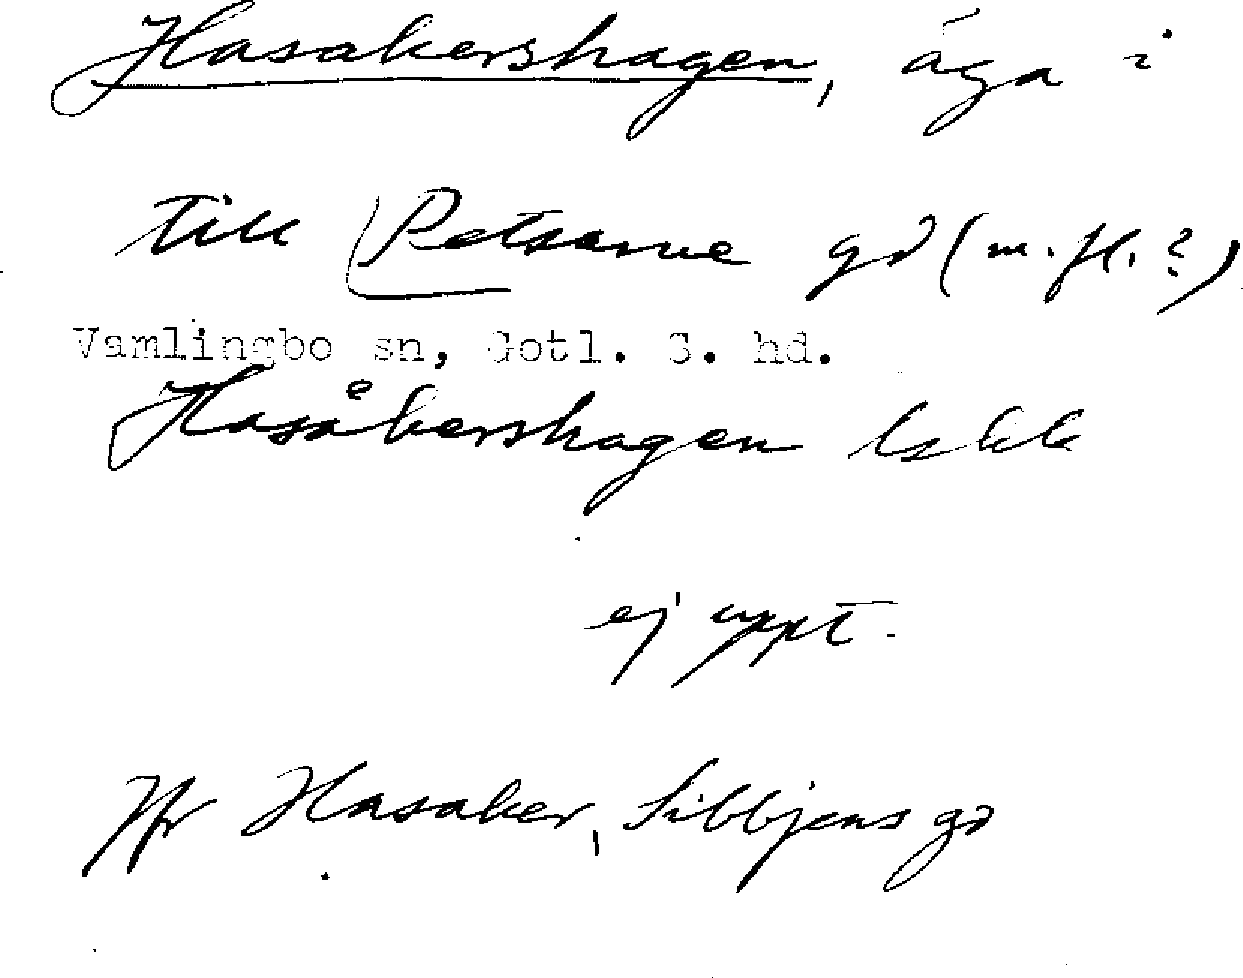 Hasakershagen, äga i
till Petsarve gd (m. fl. ?)
Vamlingbo sn, Gotl. S. hd.
Hasåkershagen lskk
ej uppt.
Jfr Hasaker, Sibbjens gd